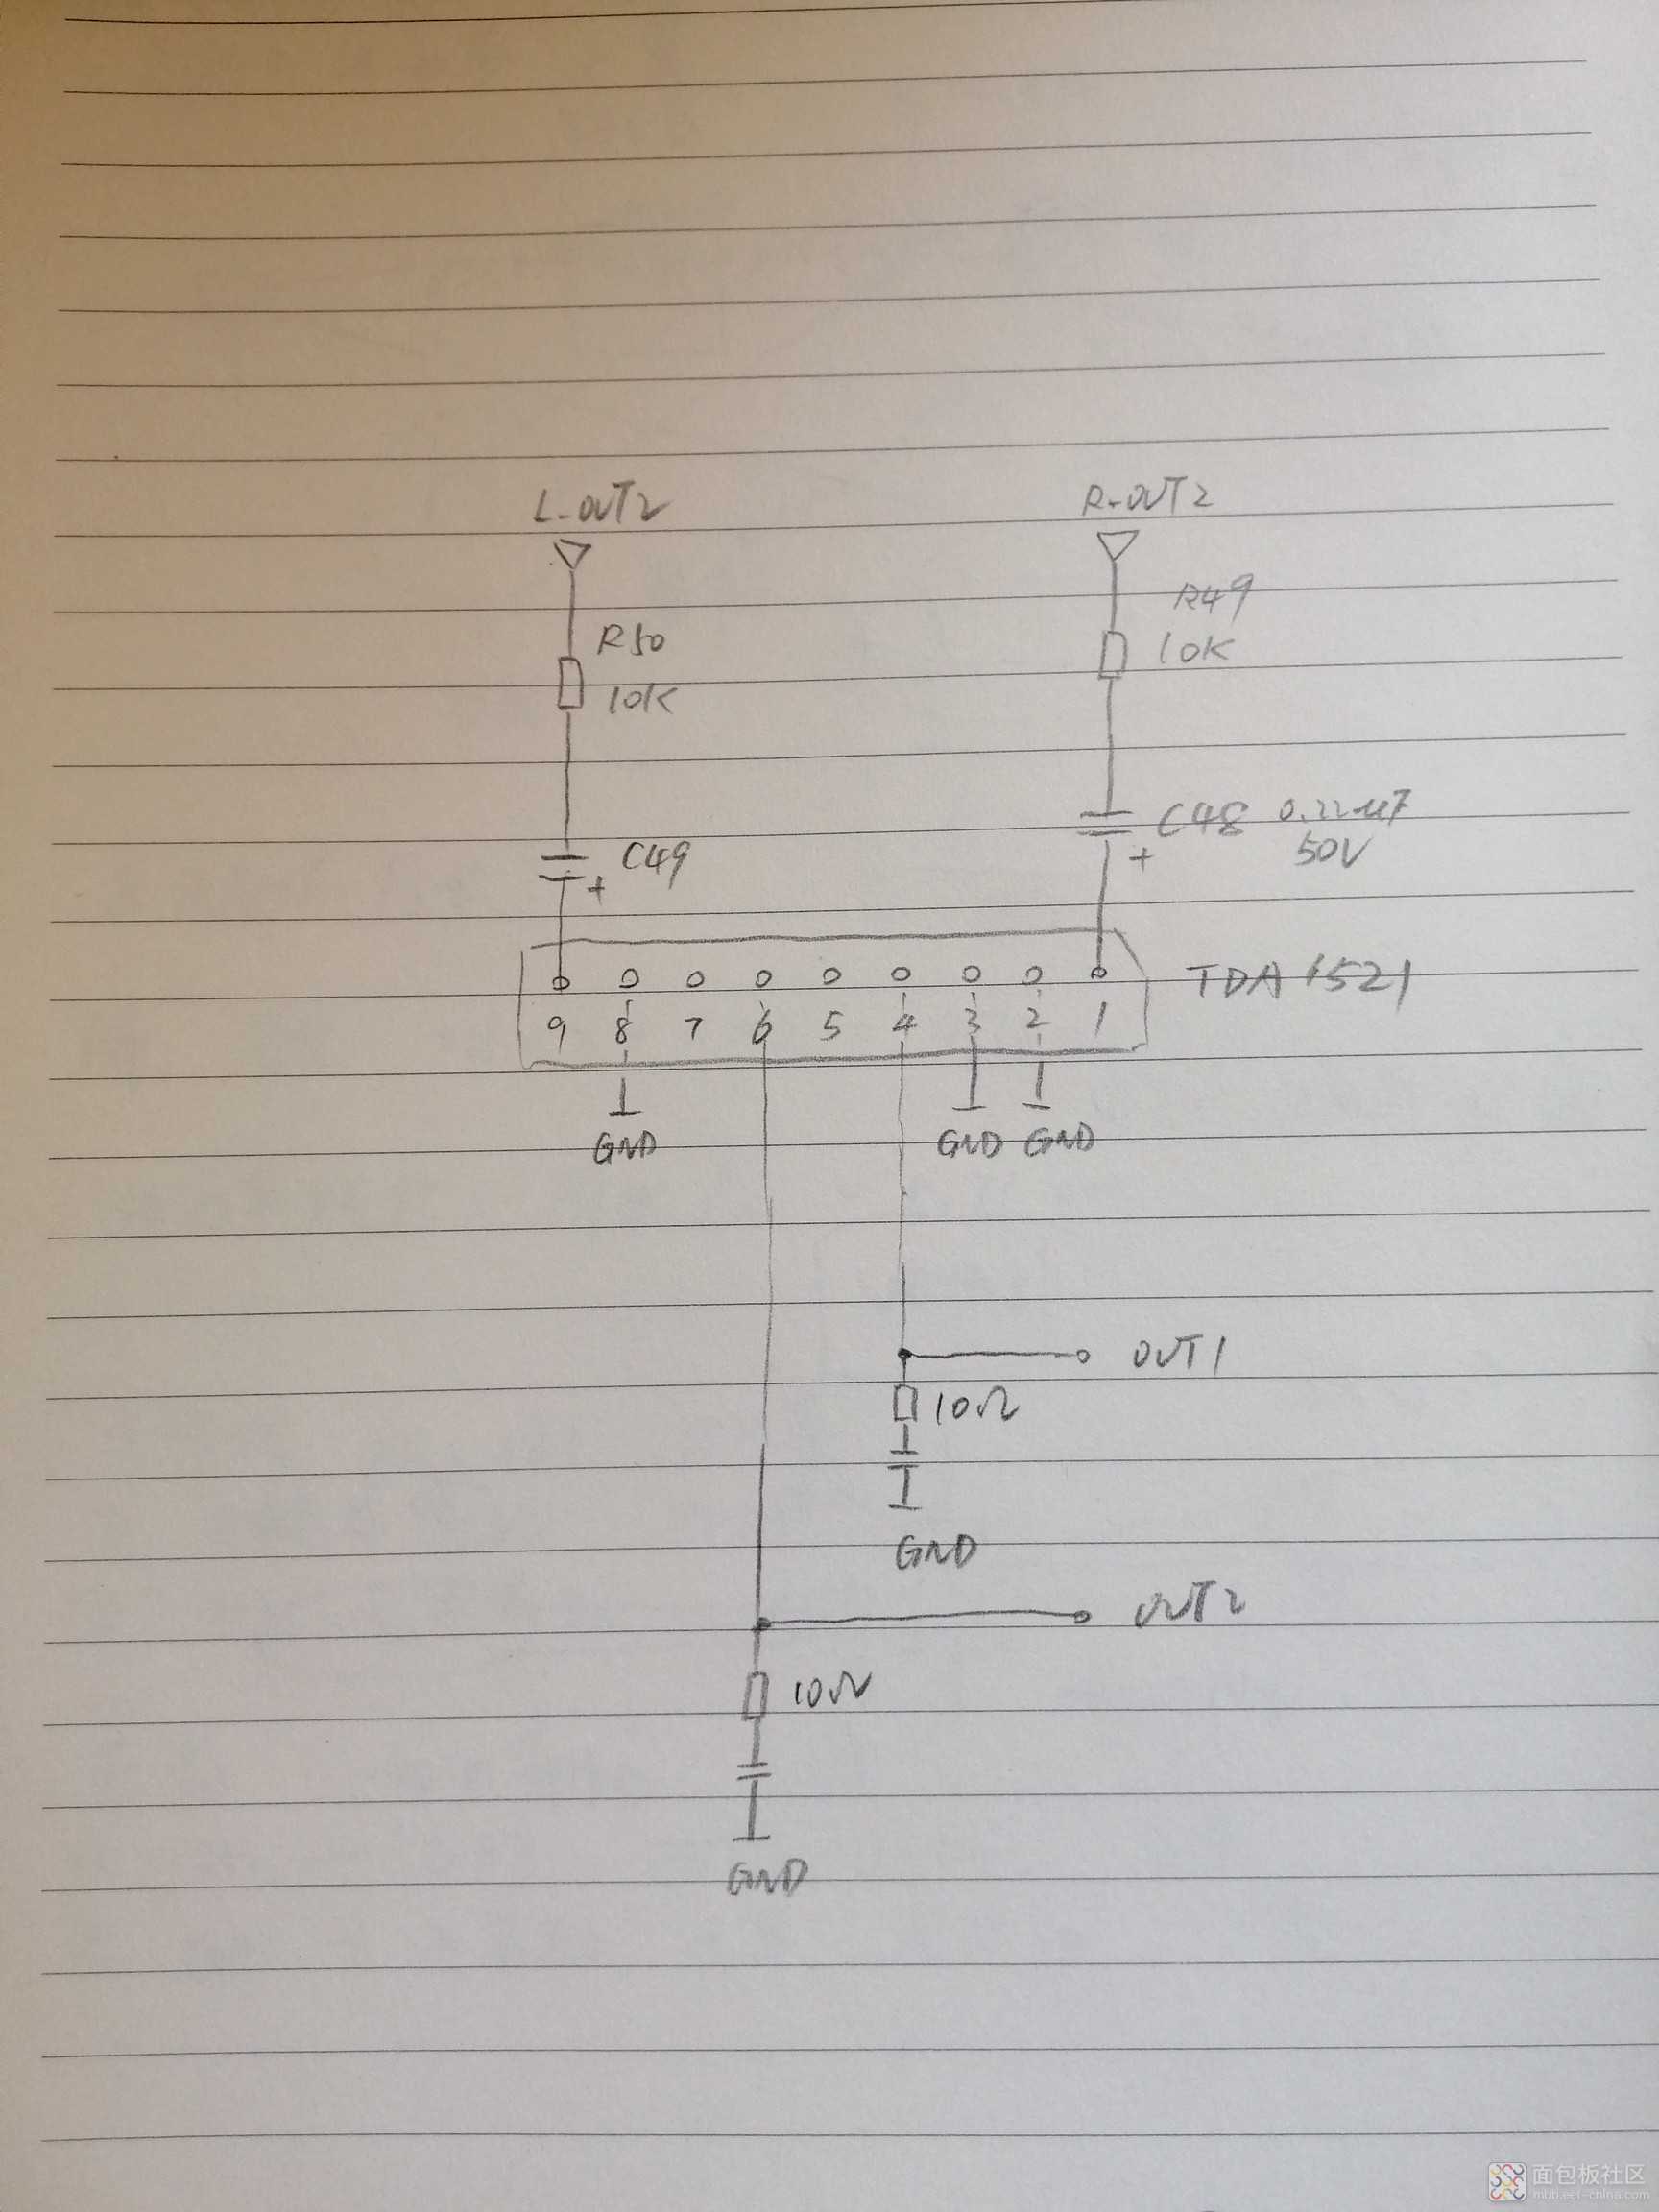 L-OUT2
R-OUT2
R49
R50
10K
10K
C48 0.22uF
50V
+
C49
+
TDA1521
9 8 7 6 5 4 3 2 1
GND
GND
GND
OUT1
10Ω
GND
OUT2
10Ω
GND
面包板社区
mbb.eet-china.com